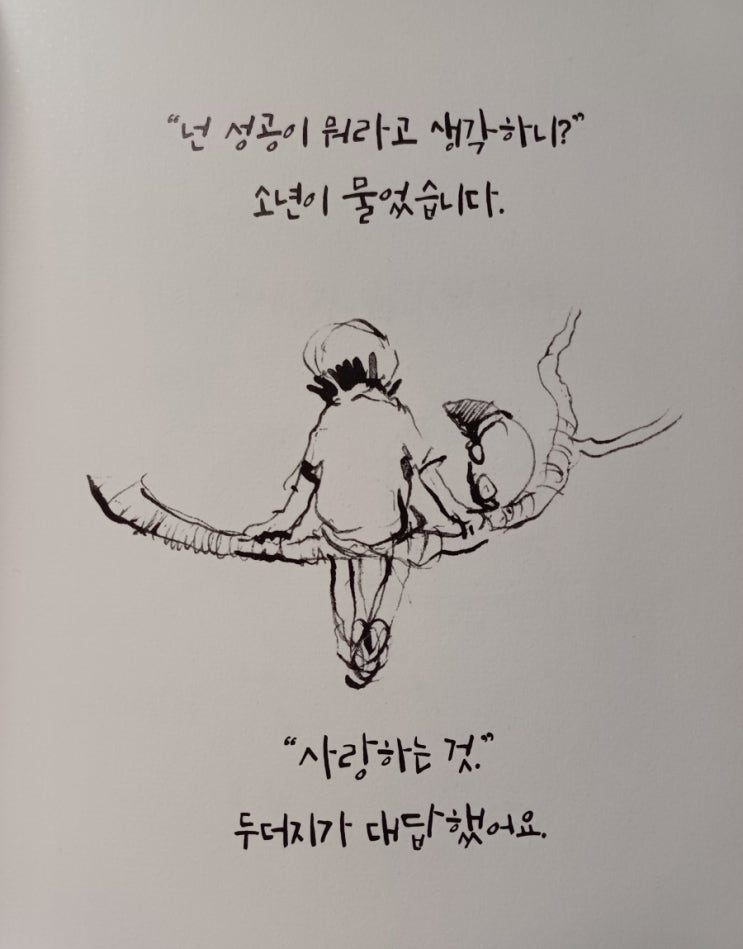 “넌 성공이 뭐라고 생각하니?”
소년이 물었습니다.
“사랑하는 것.”
두더지가 대답했어요.